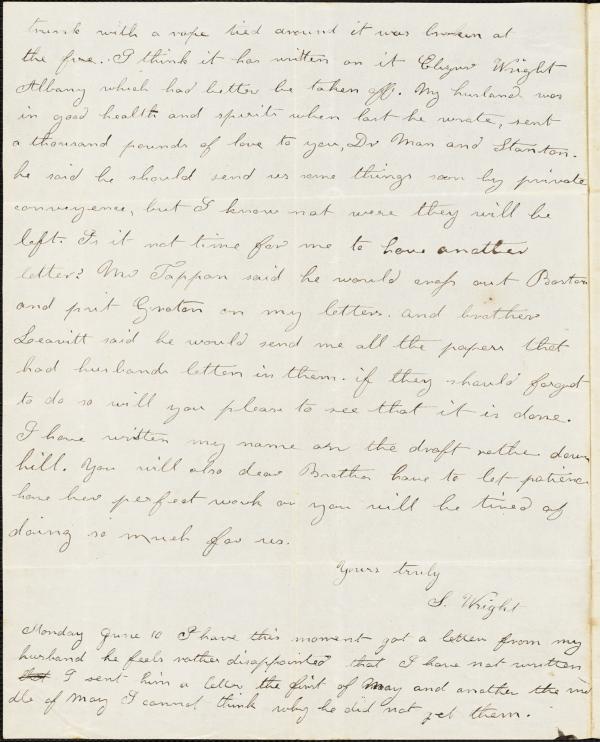 trunk with a rope tied around it was broken at
the fire. I think it has written on it Elizur Wright
Albany which had better be taken off. My husband was
in good health and spirits when last he wrote, sent
a thousand pounds of love to you, Dr Man and Stanton.
he said he should send us some things soon by private
conveyence, but I know not were they will be
left. Is it not time for me to have another
letter? Mr Tappan said he would crofs out Boston
and put Groton on my letters. and brother
Leavitt said he would send me all the papers that
had husbands letters in them. if they should forget
to do so will you please to see that it is done.
I have written my name on the draft rather down
hill. You will also dear Brother have to let patience
have her perfect work or you will be tired of
doing so much for us.
Yours truly
S. Wright
Monday June 10 I have this moment got a letter from my
husband he feels rather disappointed that I have not written
I sent him a letter the first of May and another the mid
dle of May I cannot think why he did not get them.